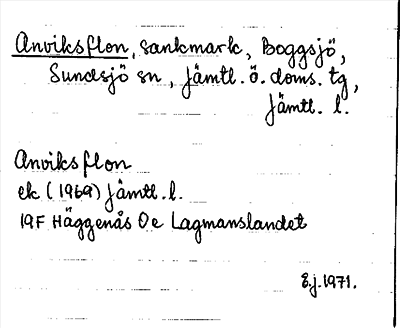 Anviksflon, sankmark, Boggsjö,
Sundsjö sn, Jämtl. ö. doms. tg,
Jämtl. l.
Anviksflon
ek (1969) Jämtl. l.
19F Häggenås 0e Lagmanslandet
E.j. 1971.